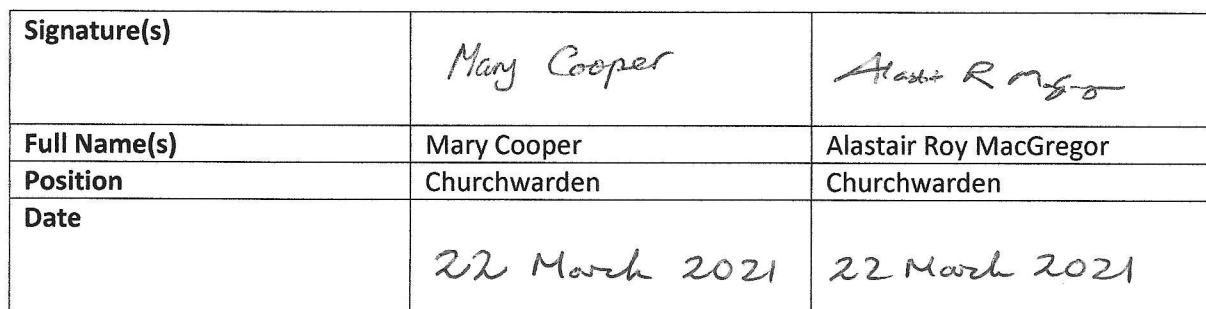 Signature(s) Mary Cooper Alastair R MacGregor
Full Name(s) Mary Cooper Alastair Roy MacGregor
Position Churchwarden Churchwarden
Date 22 March 2021 22 March 2021